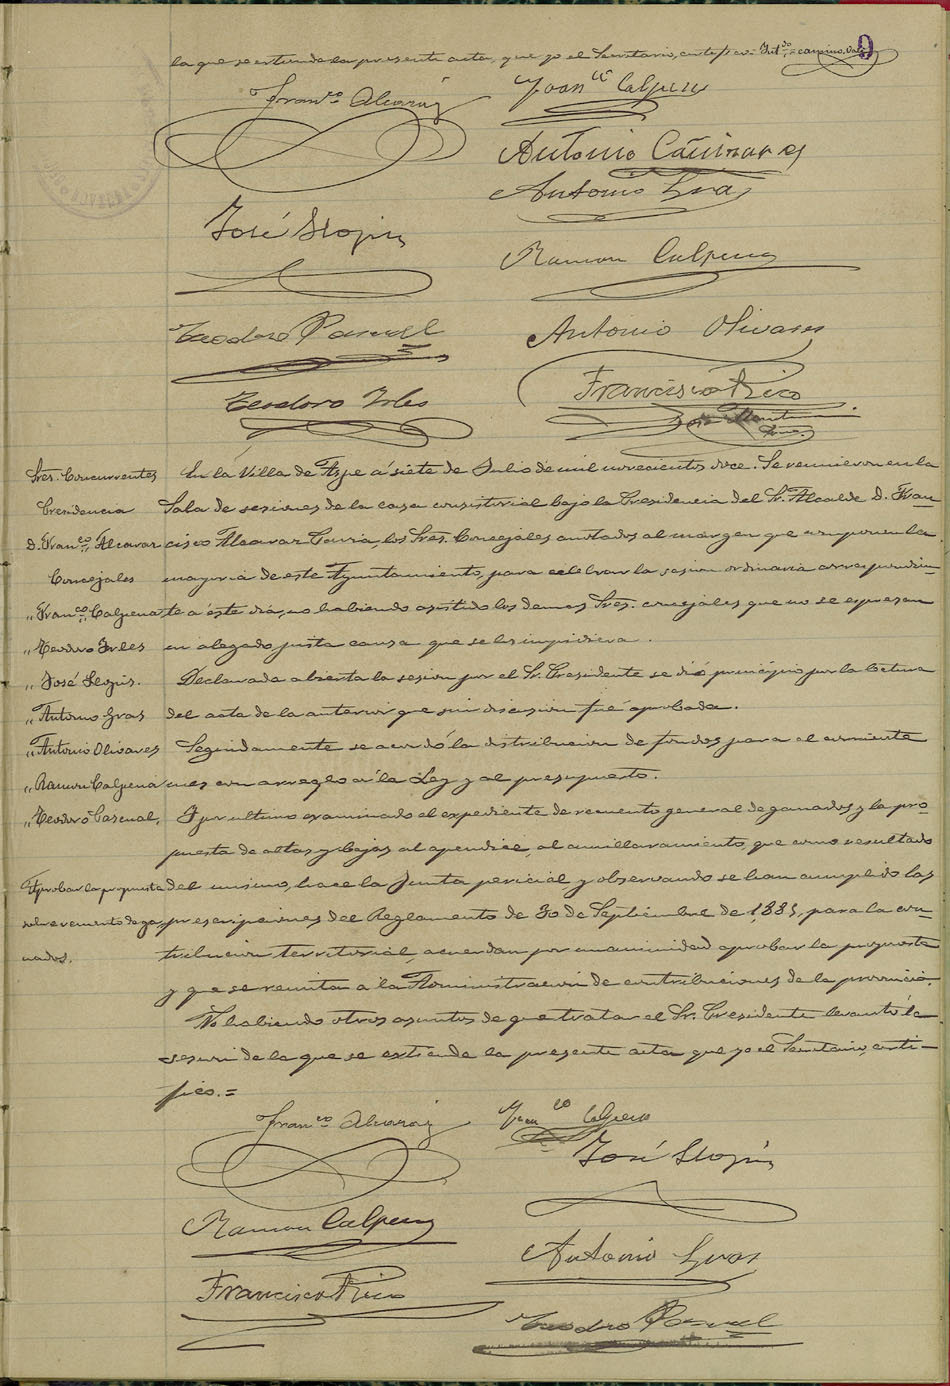 la que se extiende la presente acta, que yo el Secretario, certifico =
9
Franco Alcaraz
Franco Calpena
Antonio Cañizares
Antonio Gras
José Llopis
Ramon Calpena
Teodoro Pascual
Antonio Olivares
Francisco Rico
Teodoro Irles
Sres. Concurrentes
Presidencia
D. Franco Alcaraz
Concejales
" Franco Calpena
" Teodoro Irles
" José Llopis.
" Antonio Gras
" Antonio Olivares
" Ramon Calpena
" Teodoro Pascual,
Aprobar la propuesta
sobre recuento de ga-
nados.
En la Villa de Aspe á siete de Julio de mil novecientos doce. Se reunieron en la
Sala de sesiones de la casa consistorial bajo la Presidencia del Sr. Alcalde D. Fran-
cisco Alcaraz los Sres. Concejales anotados al margen que componen la
mayoria de este Ayuntamiento, para celebrar la sesion ordinaria correspondien-
te a este dia, no habiendo asistido los demas Sres. concejales que no se expresan
ni alegado justa causa que se les impidiera.
Declarada abierta la sesion por el Sr. Presidente se dió principio por la lectura
del acta de la anterior que sin discusion fué aprobada.
Seguidamente se acordó la distribucion de fondos para el corriente
mes con arreglo á la Ley y al presupuesto.
Y por ultimo examinado el expediente de recuento general de ganados, y la pro-
puesta de altas y bajas al apendice, al amillaramiento, que como resultado
del mismo, hace la Junta pericial, y observando se han cumplido las
prescripciones del Reglamento de 30 de Septiembre de 1885, para la con-
tribucion territorial, acuerdan por unanimidad aprobar la propuesta
y que se remita a la Administracion de contribuciones de la provincia.
No habiendo otros asuntos de que tratar el Sr. Presidente levantó la
sesion de la que se extiende la presente acta que yo el Secretario, certi-
fico. =
Franco Alcaraz
Franco Calpena
José Llopis
Ramon Calpena
Antonio Gras
Francisco Rico
Teodoro Pascual